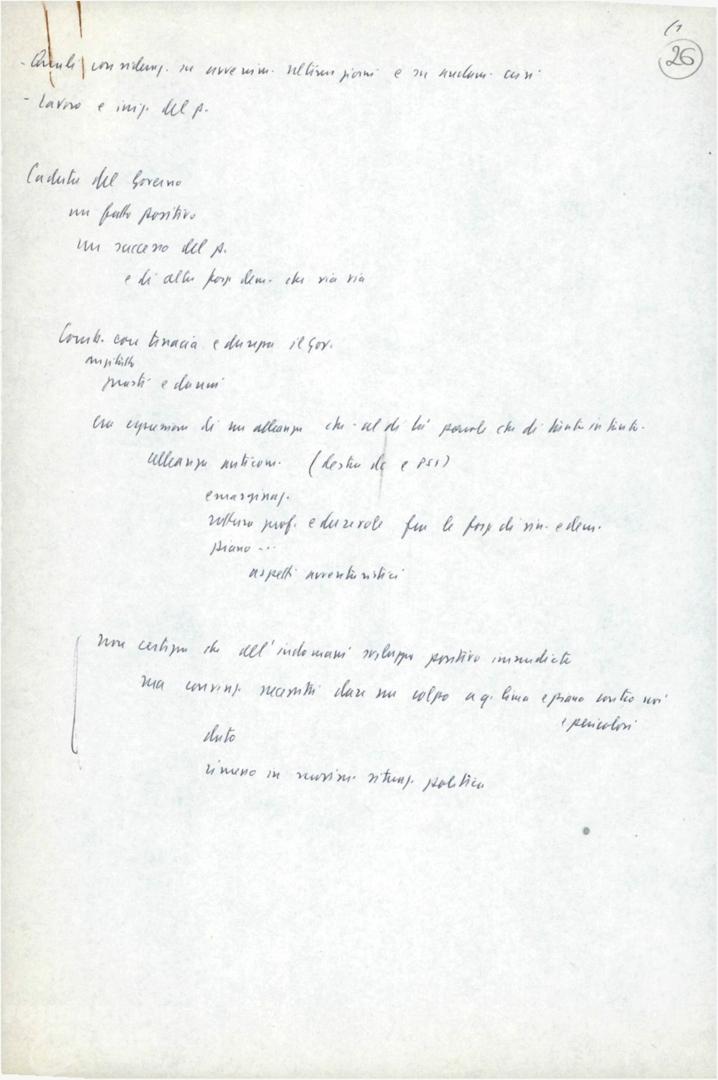 (1
26
- Qualche consideraz. su avvenim. ultimi giorni e su andam. crisi
- Lavoro e iniz. del p.
Caduta del Governo
un fatto positivo
un successo del p.
e di altre forze dem. che via via
Comb. con tenacia e durezza il Gov.
guasti e danni
era espressione di un'alleanza che al di là parole che di tanto in tanto.
alleanza anticom. (destra dc e PSI)
emarginaz.
rottura prof. e durevole fra le forze di sin. e dem.
piano ...
aspetti avventuristici
non certezza che all'indomani sviluppo positivo immediato
ma convinz. necessità dare un colpo a q. linea e piano contro noi
e pericolosi
dato
rimesso in movim. situaz. politica